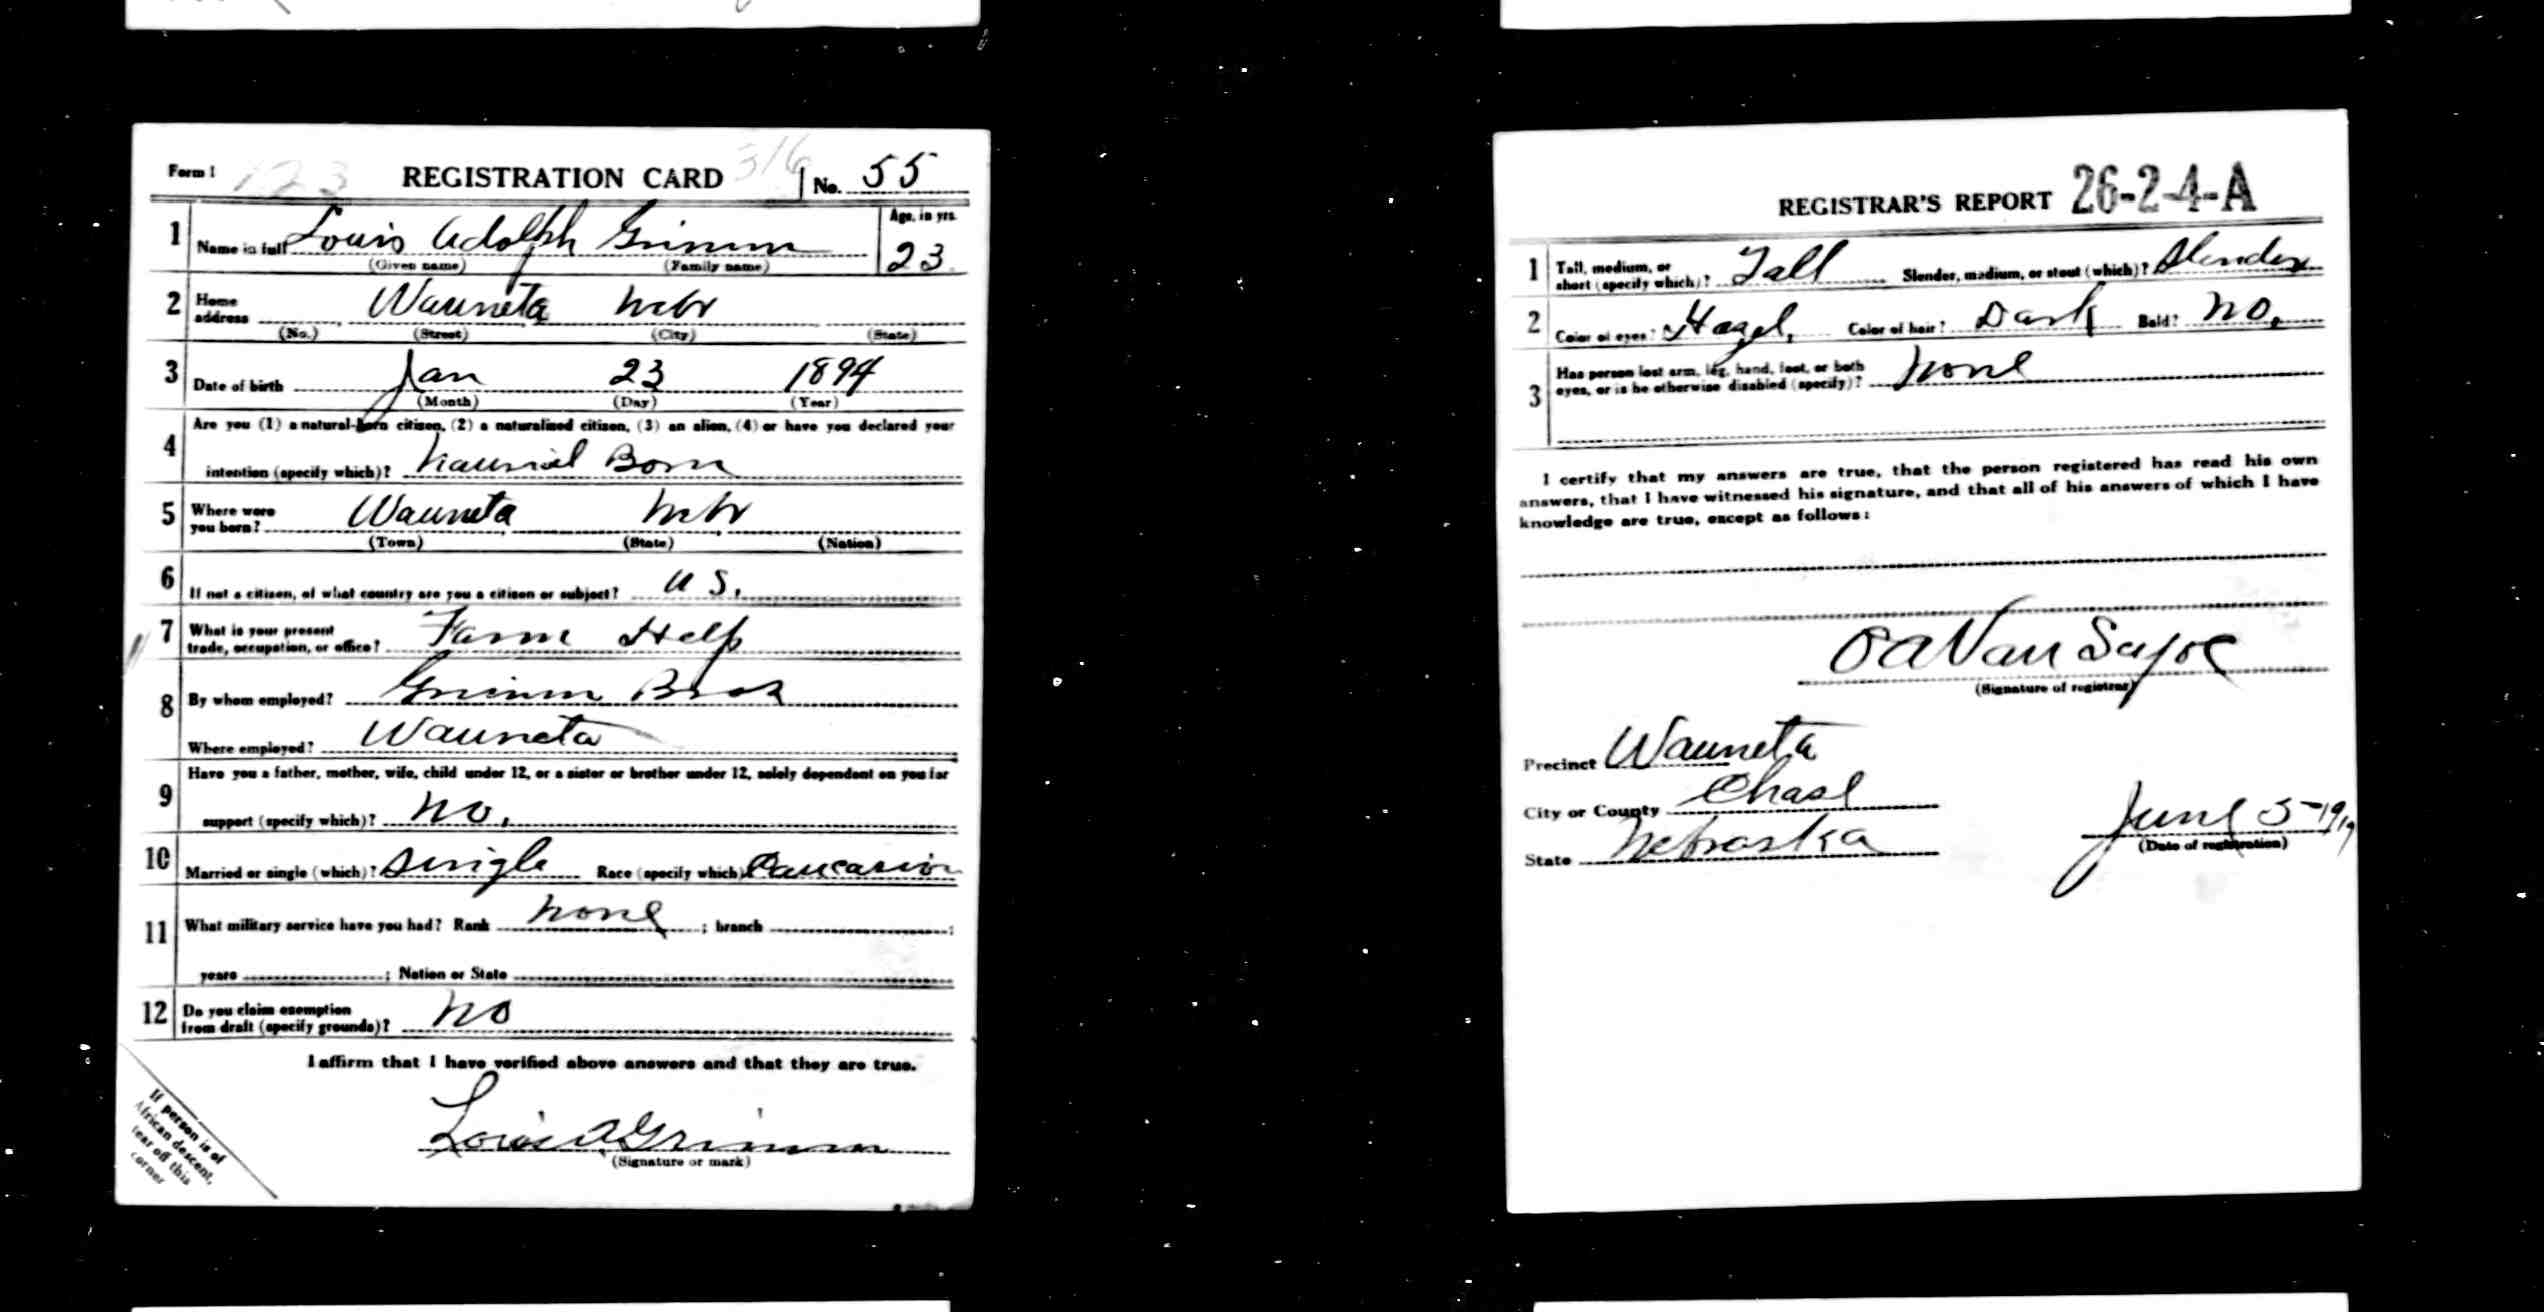 Form 1 123 REGISTRATION CARD 316 No. 55
1 Name in full Louis Adolph Grimm Age, in yrs. 23
(Given name) (Family name)
2 Home address Wauneta Nebr
(No.) (Street) (City) (State)
3 Date of birth Jan 23 1894
(Month) (Day) (Year)
4 Are you (1) a natural-born citizen, (2) a naturalized citizen, (3) an alien, (4) or have you declared your
intention (specify which)? Born
5 Where were you born? Wauneta Nebr
(Town) (State) (Nation)
6 If not a citizen, of what country are you a citizen or subject? U S.
7 What is your present trade, occupation, or office? Farm Help
8 By whom employed? Grimm Bros
Where employed? Wauneta
9 Have you a father, mother, wife, child under 12, or a sister or brother under 12, solely dependent on you for
support (specify which)? No.
10 Married or single (which)? Single Race (specify which)? Caucasion
11 What military service have you had? Rank None ; branch ;
years ; Nation or State
12 Do you claim exemption from draft (specify grounds)? No
I affirm that I have verified above answers and that they are true.
Louis A Grimm
(Signature or mark)
If person is of
African descent,
tear off this
corner
REGISTRAR'S REPORT 26-2-4-A
1 Tall, medium, or short (specify which)? Tall Slender, medium, or stout (which)? Slender
2 Color of eyes? Hazel. Color of hair? Dark Bald? No.
3 Has person lost arm, leg, hand, foot, or both
eyes, or is he otherwise disabled (specify)? None
I certify that my answers are true, that the person registered has read his own
answers, that I have witnessed his signature, and that all of his answers of which I have
knowledge are true, except as follows:
(Signature of registrar)
Precinct Wauneta
City or County Chase
State Nebraska
June 5-1917
(Date of registration)